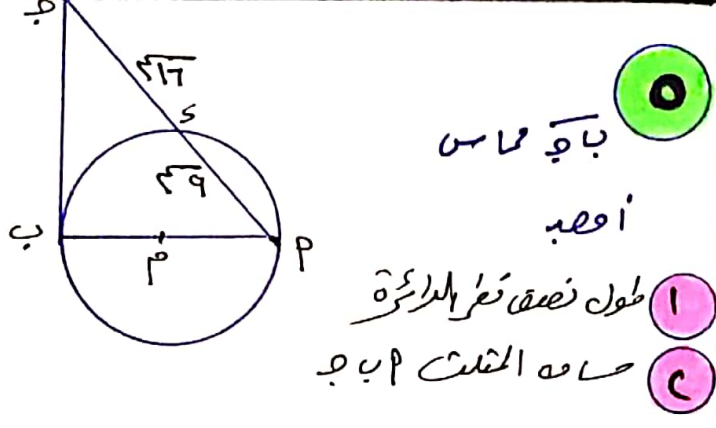 ٥
ب جـ مماس
أوجد
١ طول نصف قطر الدائرة
٢ مساحة المثلث أ ب جـ
جـ
١٦سم
د
٩سم
ب
م
أ